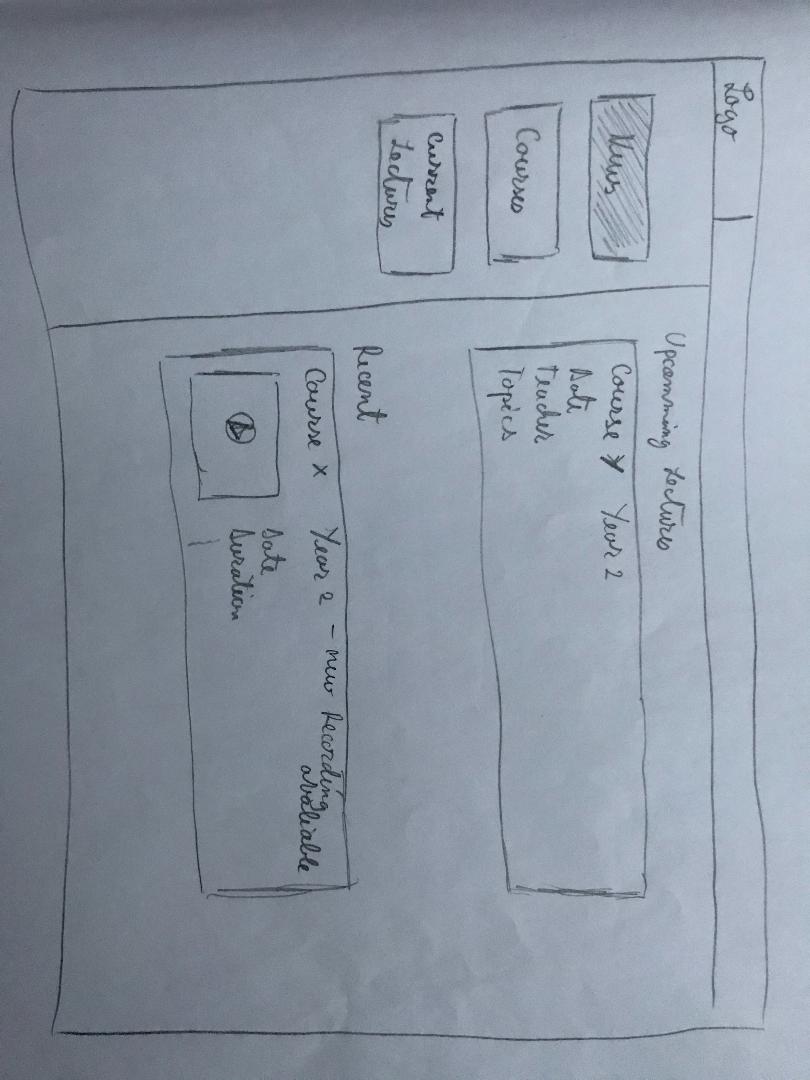 Logo
News
Courses
Current
Lectures
Upcomming Lectures
Course Y Year 2
Date
Teacher
Topics
Recent
Course X Year 2 - new Recording
avaliable
Date
Duration